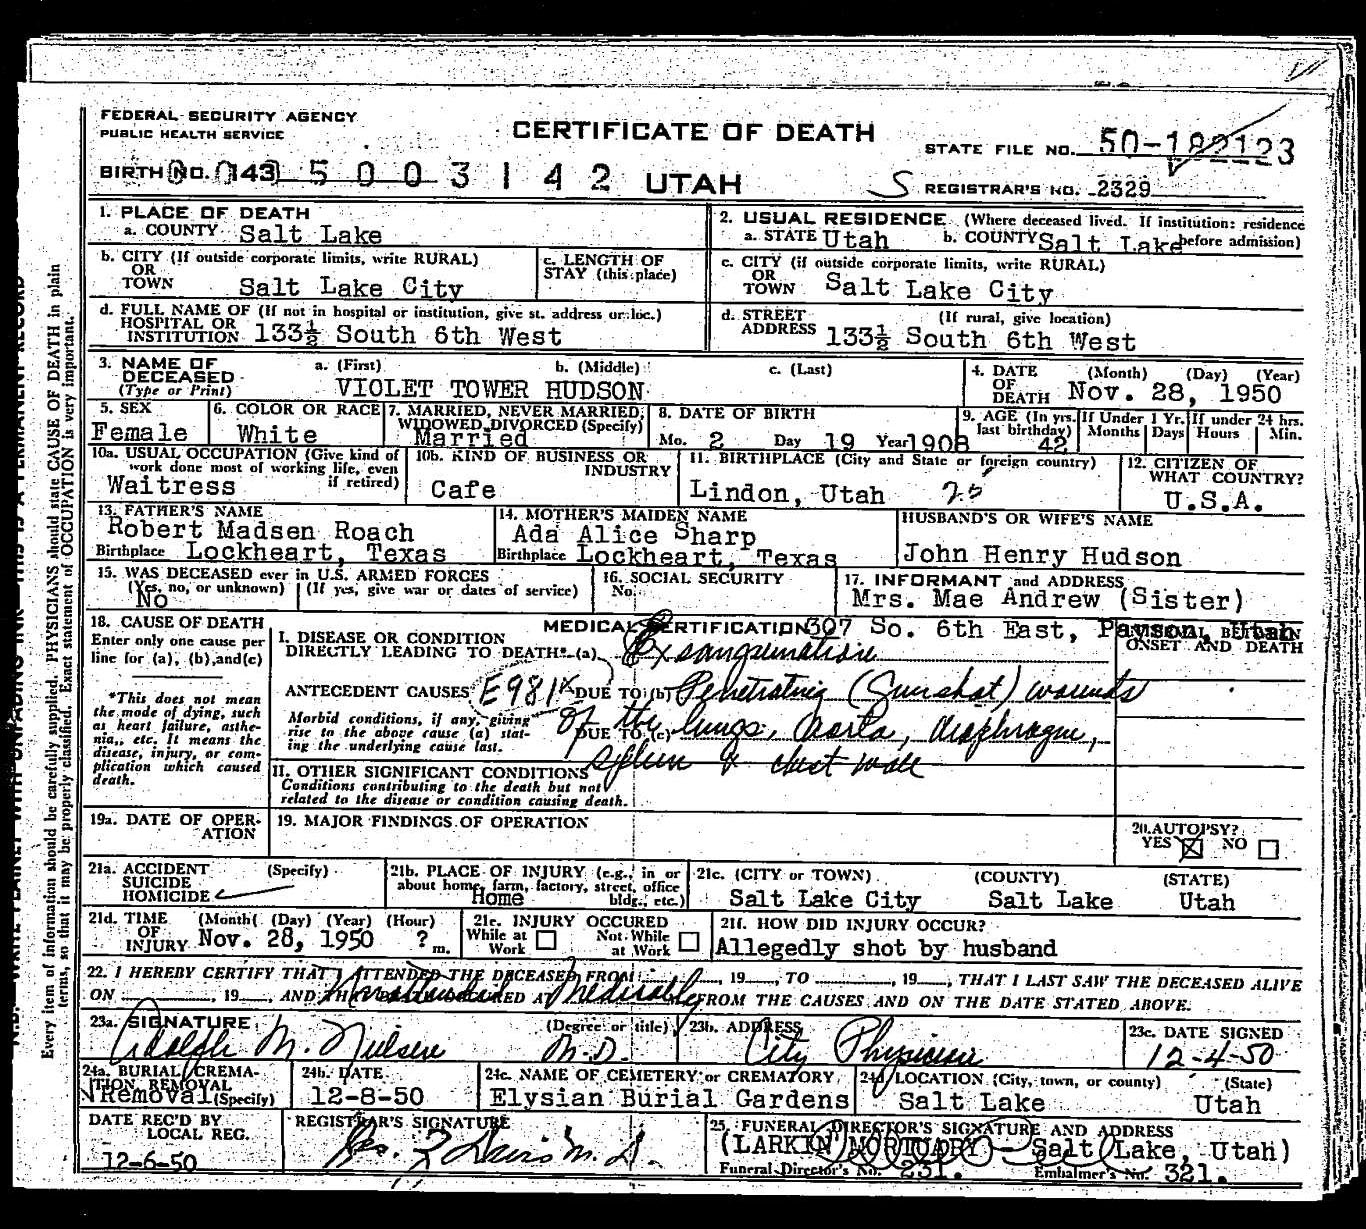 FEDERAL SECURITY AGENCY
PUBLIC HEALTH SERVICE
CERTIFICATE OF DEATH
STATE FILE NO. 50-182123
BIRTH NO. 143 5003142 UTAH
S REGISTRAR'S NO. 2329
1. PLACE OF DEATH
a. COUNTY Salt Lake
2. USUAL RESIDENCE (Where deceased lived. If institution: residence before admission)
a. STATE Utah b. COUNTY Salt Lake
b. CITY (If outside corporate limits, write RURAL)
OR TOWN Salt Lake City
c. LENGTH OF STAY (this place)
c. CITY (if outside corporate limits, write RURAL)
OR TOWN Salt Lake City
d. FULL NAME OF (If not in hospital or institution, give st. address or loc.)
HOSPITAL OR INSTITUTION 133½ South 6th West
d. STREET ADDRESS (If rural, give location)
133½ South 6th West
3. NAME OF DECEASED (Type or Print)
a. (First) b. (Middle) c. (Last)
VIOLET TOWER HUDSON
4. DATE OF DEATH (Month) (Day) (Year)
Nov. 28, 1950
5. SEX
Female
6. COLOR OR RACE
White
7. MARRIED, NEVER MARRIED, WIDOWED, DIVORCED (Specify)
Married
8. DATE OF BIRTH
Mo. 2 Day 19 Year 1908
9. AGE (In yrs. last birthday) 42
If Under 1 Yr. Months Days
If under 24 hrs. Hours Min.
10a. USUAL OCCUPATION (Give kind of work done most of working life, even if retired)
Waitress
10b. KIND OF BUSINESS OR INDUSTRY
Cafe
11. BIRTHPLACE (City and State or foreign country)
Lindon, Utah 25
12. CITIZEN OF WHAT COUNTRY?
U.S.A.
13. FATHER'S NAME
Robert Madsen Roach
Birthplace Lockheart, Texas
14. MOTHER'S MAIDEN NAME
Ada Alice Sharp
Birthplace Lockheart, Texas
HUSBAND'S OR WIFE'S NAME
John Henry Hudson
15. WAS DECEASED ever in U.S. ARMED FORCES
(Yes, no, or unknown) (If yes, give war or dates of service)
No
16. SOCIAL SECURITY No.
17. INFORMANT and ADDRESS
Mrs. Mae Andrew (Sister)
307 So. 6th East, Payson, Utah
18. CAUSE OF DEATH
Enter only one cause per line for (a), (b), and (c)
MEDICAL CERTIFICATION
INTERVAL BETWEEN ONSET AND DEATH
I. DISEASE OR CONDITION DIRECTLY LEADING TO DEATH* (a) Exsanguination
*This does not mean the mode of dying, such as heart failure, asthenia, etc. It means the disease, injury, or complication which caused death.
ANTECEDENT CAUSES E981X DUE TO (b) Penetrating (Gunshot) wounds
Morbid conditions, if any, giving rise to the above cause (a) stating the underlying cause last.
DUE TO (c) of the lungs, aorta, diaphragm,
spleen & chest wall
II. OTHER SIGNIFICANT CONDITIONS
Conditions contributing to the death but not related to the disease or condition causing death.
19a. DATE OF OPERATION
19. MAJOR FINDINGS OF OPERATION
20. AUTOPSY?
YES ☒ NO ☐
21a. ACCIDENT (Specify)
SUICIDE
HOMICIDE ✓
21b. PLACE OF INJURY (e.g., in or about home, farm, factory, street, office bldg., etc.)
Home
21c. (CITY or TOWN) (COUNTY) (STATE)
Salt Lake City Salt Lake Utah
21d. TIME OF INJURY (Month) (Day) (Year) (Hour)
Nov. 28, 1950 ? m.
21e. INJURY OCCURED
While at Work ☐ Not While at Work ☐
21f. HOW DID INJURY OCCUR?
Allegedly shot by husband
22. I HEREBY CERTIFY THAT I ATTENDED THE DECEASED FROM , 19 , TO , 19 , THAT I LAST SAW THE DECEASED ALIVE
ON , 19 , AND THAT DEATH OCCURRED AT FROM THE CAUSES AND ON THE DATE STATED ABOVE.
Unattended Medically
23a. SIGNATURE (Degree or title)
Adolph M. Nielsen M.D.
23b. ADDRESS
City Physician
23c. DATE SIGNED
12-4-50
24a. BURIAL, CREMATION, REMOVAL (Specify)
Removal
24b. DATE
12-8-50
24c. NAME OF CEMETERY or CREMATORY
Elysian Burial Gardens
24d. LOCATION (City, town, or county) (State)
Salt Lake Utah
DATE REC'D BY LOCAL REG.
12-6-50
REGISTRAR'S SIGNATURE
Davis M.D.
25. FUNERAL DIRECTOR'S SIGNATURE AND ADDRESS
(LARKIN MORTUARY - Salt Lake, Utah)
Funeral Director's No. 231. Embalmer's No. 321.
N.B. WRITE PLAINLY WITH UNFADING INK THIS IS A PERMANENT RECORD
Every item of information should be carefully supplied. PHYSICIANS should state CAUSE OF DEATH in plain
terms, so that it may be properly classified. Exact statement of OCCUPATION is very important.